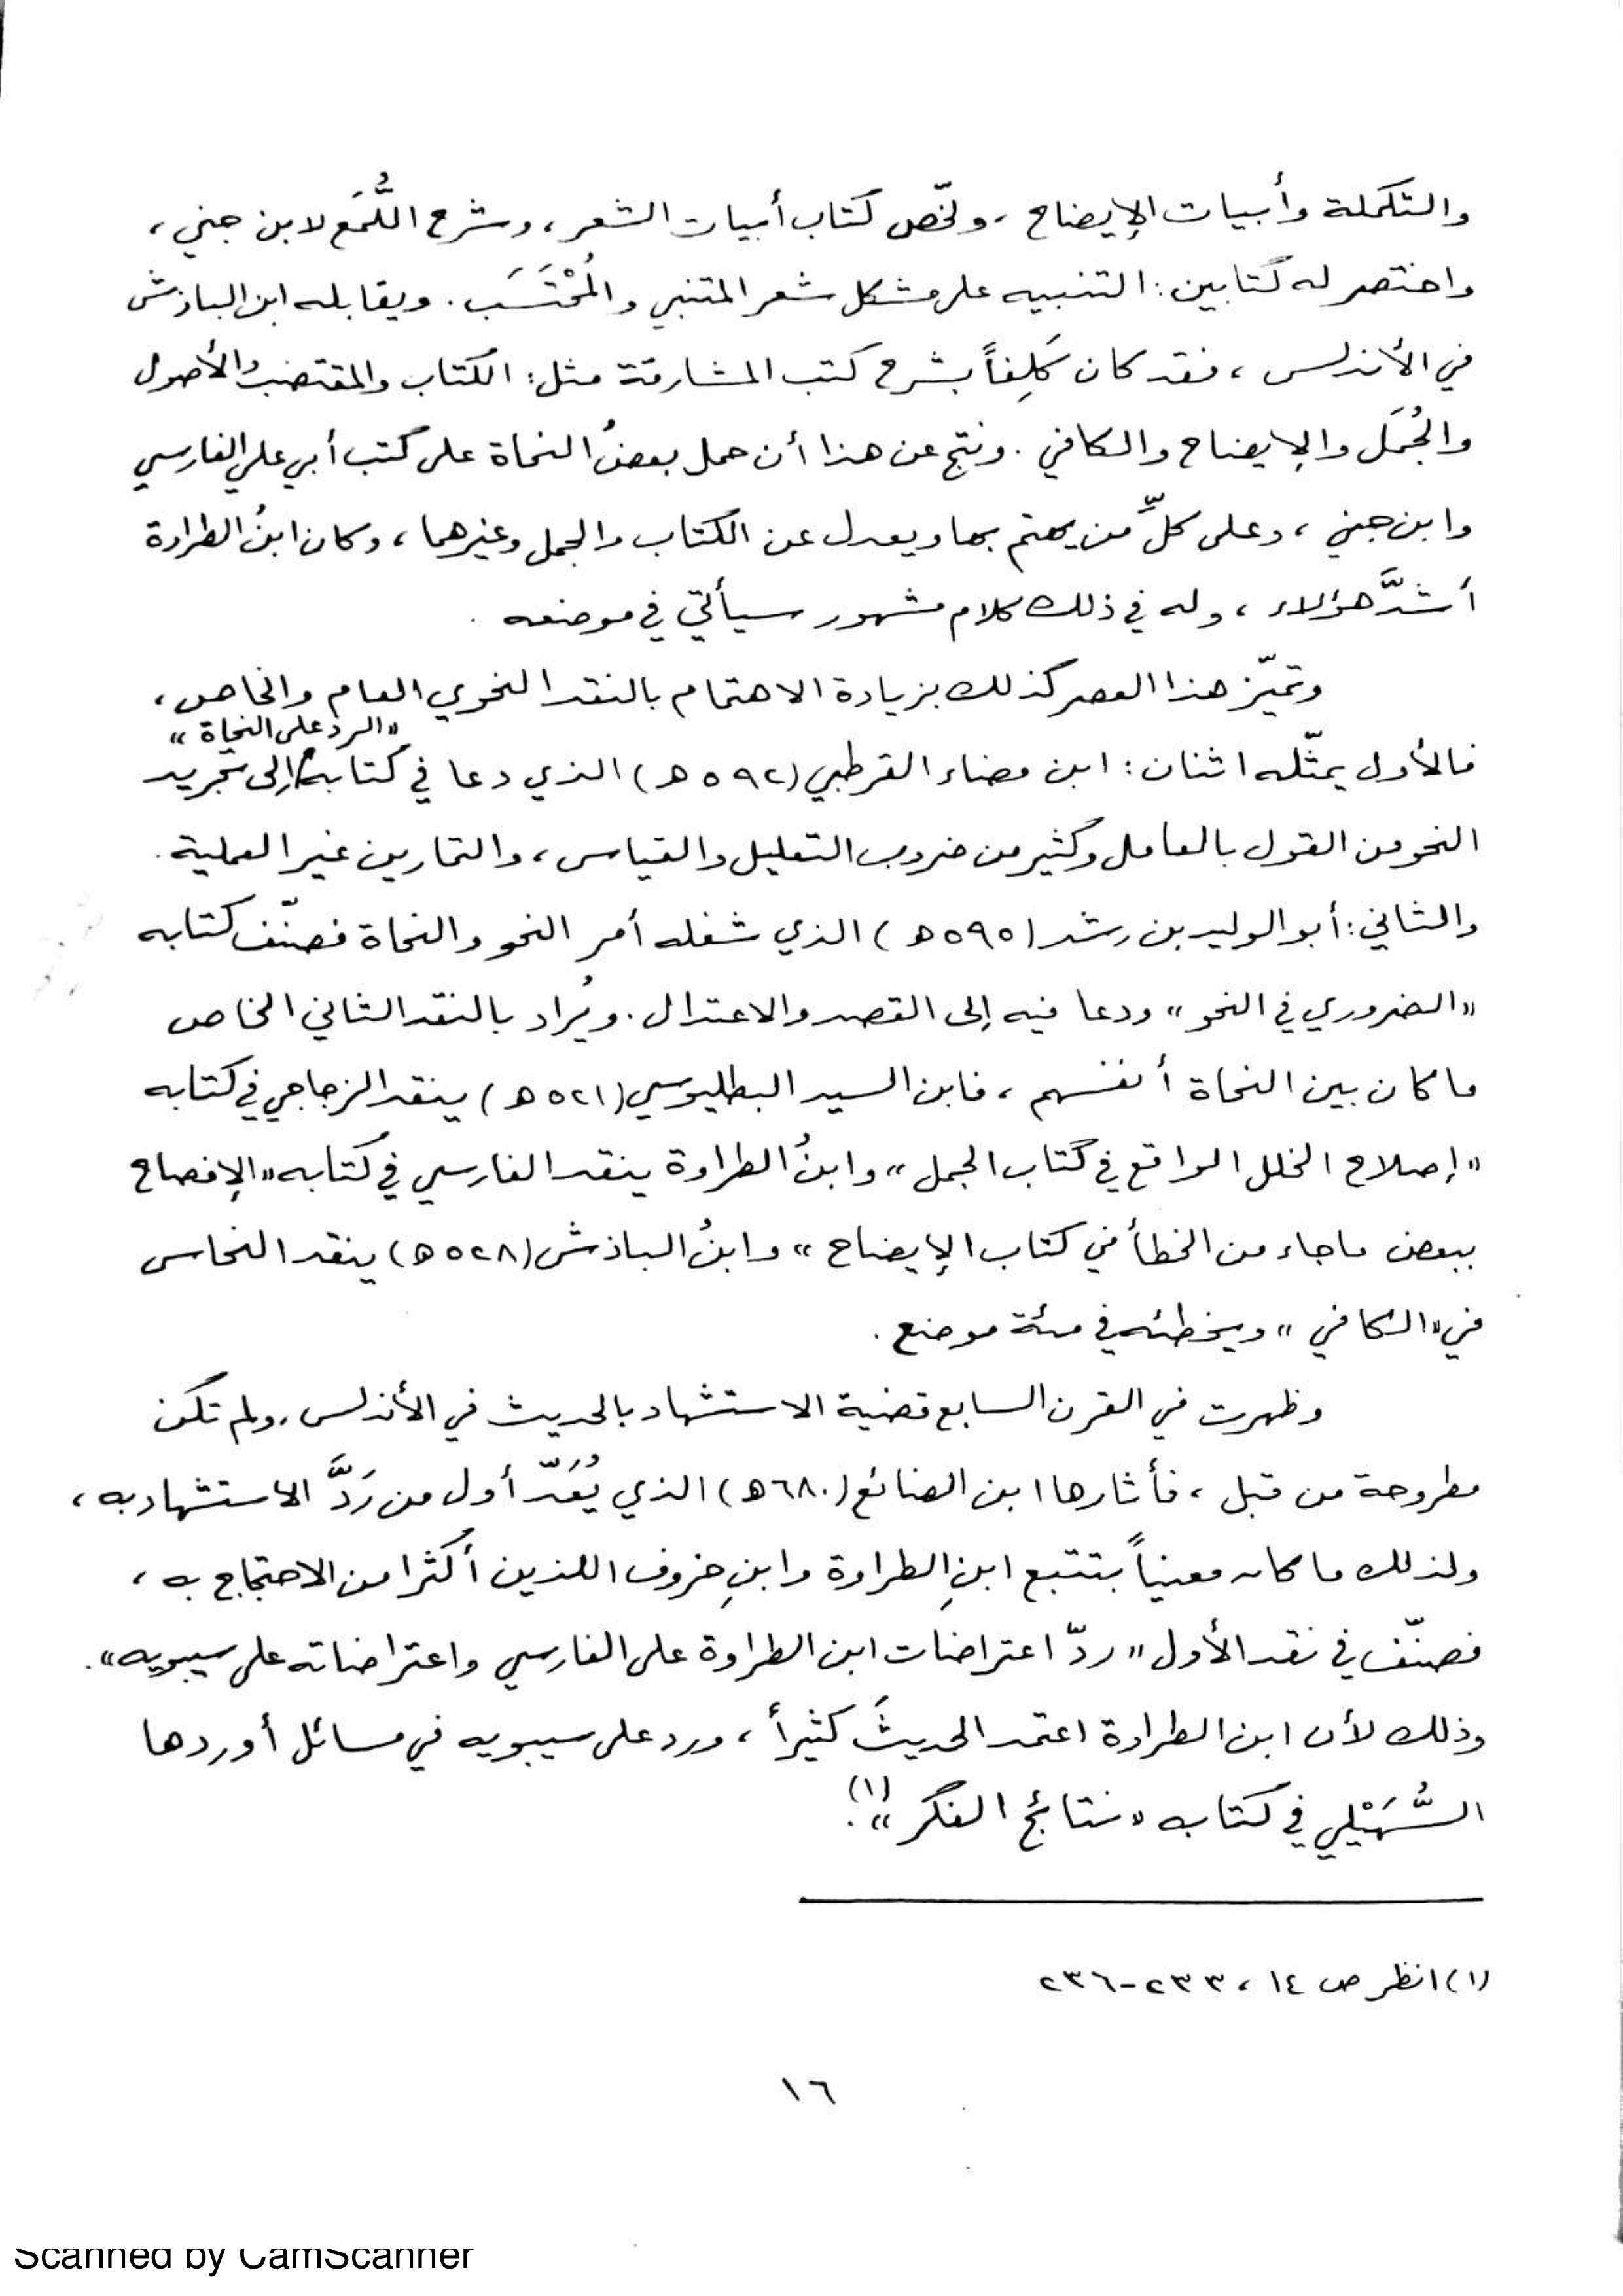 والتكملة وأبيات الإيضاح ، ولخّص كتاب أبيات الشعر ، وشرح اللُّمَع لابن جني ،
واختصر له كتابين : التنبيه على مشكل شعر المتنبي والمُحْتَسَب . ويقابله ابن الباذش
في الأندلس ، فقد كان كَلِفاً بشرح كتب المشارقة مثل : الكتاب والمقتضب والأصول
والجُمَل والإيضاح والكافي . ونتج عن هذا أن حمل بعضُ النحاة على كتب أبي علي الفارسي
وابن جني ، وعلى كلِّ من يهتم بها ويعدل عن الكتاب والجمل وغيرهما ، وكان ابنُ الطراوة
أشدَّ هؤلاء ، وله في ذلك كلام مشهور سيأتي في موضعه .
وتميّز هذا العصر كذلك بزيادة الاهتمام بالنقد النحوي العام والخاص ،
فالأول يمثّله اثنان : ابن مضاء القرطبي (٥٩٢ هـ) الذي دعا في كتابه «الرد على النحاة» إلى تجريد
النحو من القول بالعامل وكثير من ضروب التعليل والقياس ، والتمارين غير العملية .
والثاني : أبو الوليد بن رشد (٥٩٥ هـ) الذي شغله أمر النحو والنحاة فصنّف كتابه
«الضروري في النحو» ودعا فيه إلى القصد والاعتدال . ويُراد بالنقد الثاني الخاص
ما كان بين النحاة أنفسهم ، فابن السيد البطليوسي (٥٢١ هـ) ينقد الزجاجي في كتابه
«إصلاح الخلل الواقع في كتاب الجمل» وابنُ الطراوة ينقد الفارسي في كتابه «الإفصاح
ببعض ما جاء من الخطأ في كتاب الإيضاح» وابنُ الباذش (٥٢٨ هـ) ينقد النحاس
في «الكافي» ويخطئه في مئة موضع .
وظهرت في القرن السابع قضية الاستشهاد بالحديث في الأندلس ، ولم تكن
مطروحة من قبل ، فأثارها ابن الضائع (٦٨٠ هـ) الذي يُعَدّ أول من رَدَّ الاستشهاد به ،
ولذلك ما كان معنياً بتتبع ابنِ الطراوة وابنِ خروف اللذين أكثرا من الاحتجاج به ،
فصنّف في نقد الأول «ردّ اعتراضات ابن الطراوة على الفارسي واعتراضاته على سيبويه» .
وذلك لأن ابن الطراوة اعتمد الحديثَ كثيراً ، ورد على سيبويه في مسائل أوردها
السُّهَيْلي في كتابه «نتائج الفكر»(١) .
(١) انظر ص ١٤ ، ٢٣٣-٢٣٦
١٦
Scanned by CamScanner